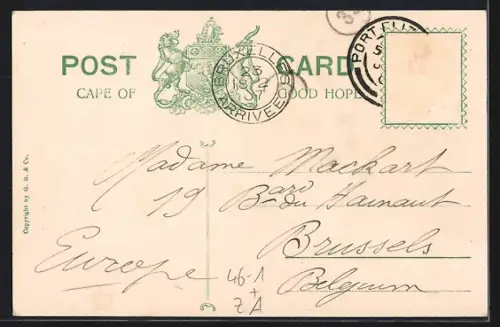 POST CARD
CAPE OF GOOD HOPE
BRUXELLES
ARRIVEE
PORT ELIZ
Copyright by G. B. & Co.
Madame Mackart
19 Bard du Hainaut
Brussels
Europe
Belgium
46-1
+
ZA